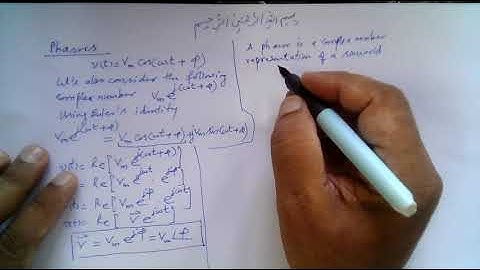 بسم الله الرحمن الرحيم
Phasors
v(t) = Vm cos(ωt + φ)
Let's also consider the following
complex number Vm e^j(ωt+φ)
Using Euler's identity
Vm e^j(ωt+φ) = Vm cos(ωt+φ) + j Vm sin(ωt+φ)
v(t) = Re[Vm e^j(ωt+φ)]
v(t) = Re[Vm e^jωt e^jφ]
v(t) = Re[Vm e^jφ e^jωt]
v(t) = Re[V⃗ e^jωt]
V⃗ = Vm e^jφ = Vm∠φ
A phasor is a complex number
representation of a sinusoid